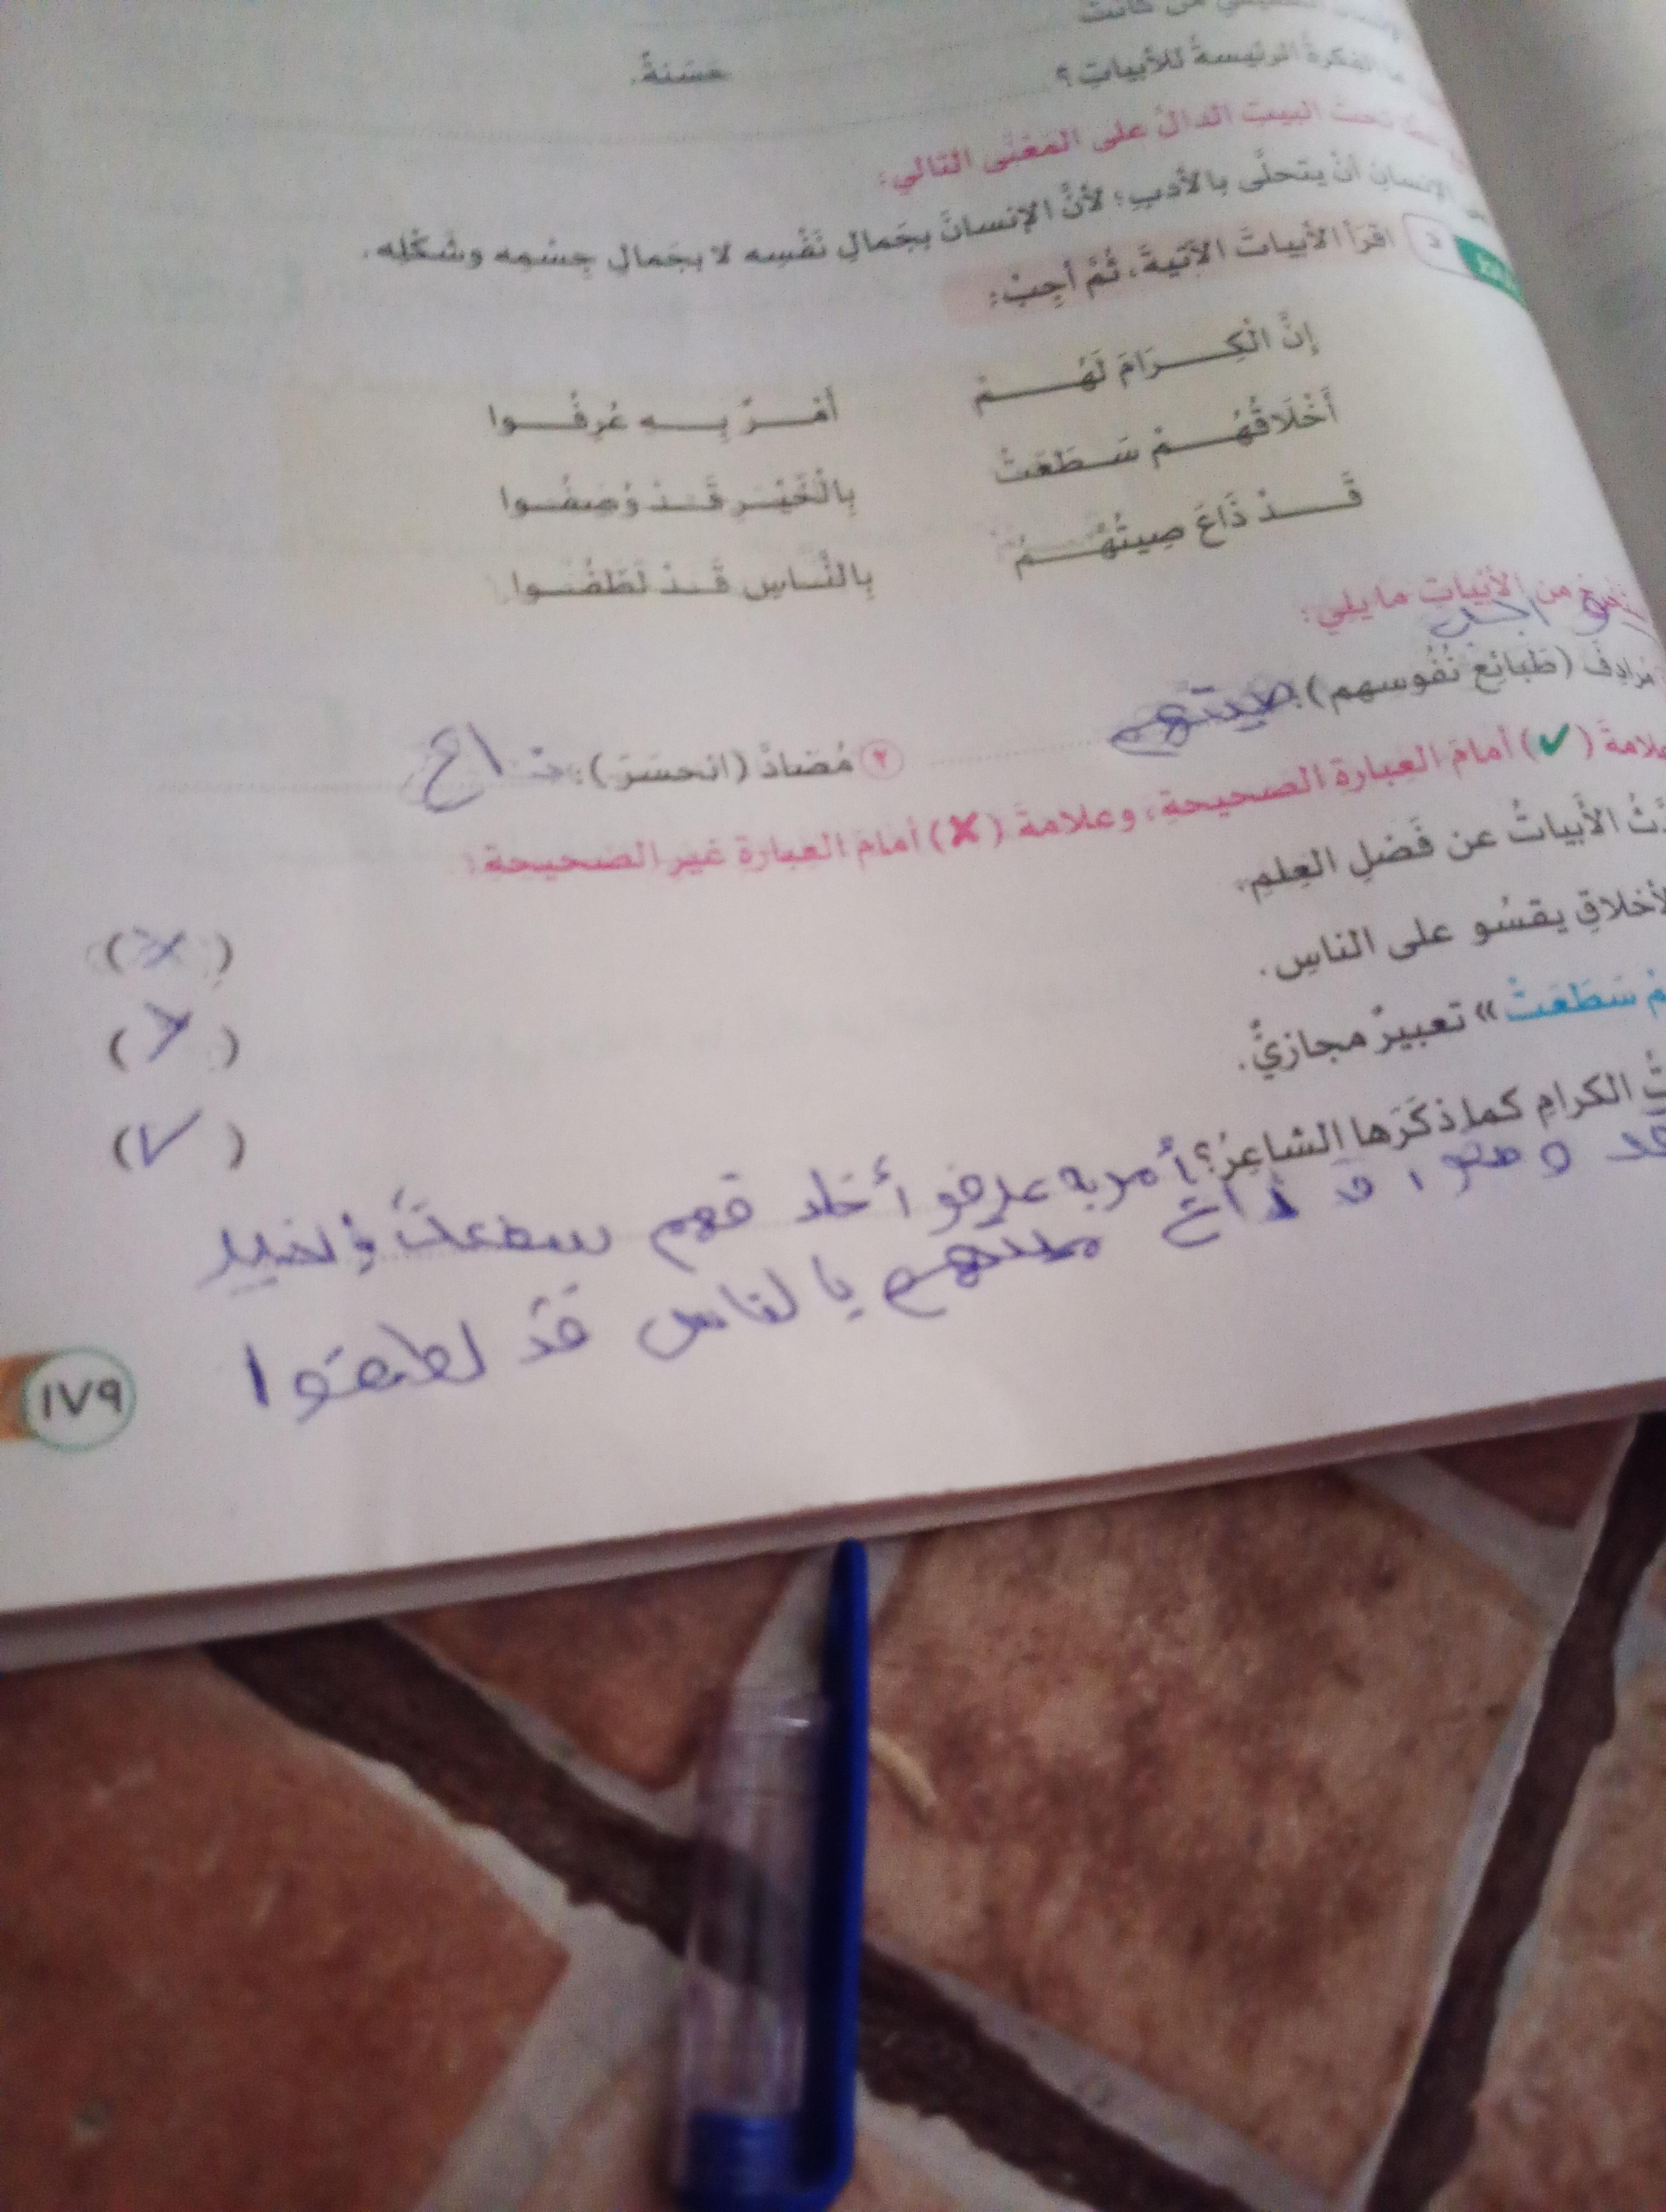 الفكرة الرئيسة للأبيات؟
حسنة.
تحت البيت الدال على المعنى التالي:
الإنسان أن يتحلَّى بالأدب؛ لأنَّ الإنسانَ بجَمالِ نَفْسِه لا بجَمالِ جِسْمِه وشَكْلِه.
اقرأ الأبياتَ الآتيةَ، ثُمَّ أجِبْ:
إِنَّ الْكِرَامَ لَهُمْ أَمْرٌ بِهِ عُرِفُوا
أَخْلَاقُهُمْ سَطَعَتْ بِالْخَيْرِ قَدْ وُصِفُوا
قَدْ ذَاعَ صِيتُهُمُ بِالنَّاسِ قَدْ لَطَفُوا
من الأبياتِ ما يلي:
مُرادِفَ (طَبائِعَ نُفُوسهم): صيتهم
٢ مُضادَّ (انحسَرَ): ذاع
علامةَ (✓) أمامَ العبارةِ الصحيحةِ، وعلامةَ (✗) أمامَ العبارةِ غيرِ الصحيحةِ:
الأبياتُ عن فَضلِ العِلمِ. (✗)
الأخلاقِ يقسُو على الناسِ. (✗)
سَطَعَتْ» تعبيرٌ مجازيٌّ. (✓)
الكرامِ كما ذكَرَها الشاعِرُ؟ أمر به عرفو أخلا قهم سطعت
ذاع صيتهم بالناس قد لطفوا
١٧٩